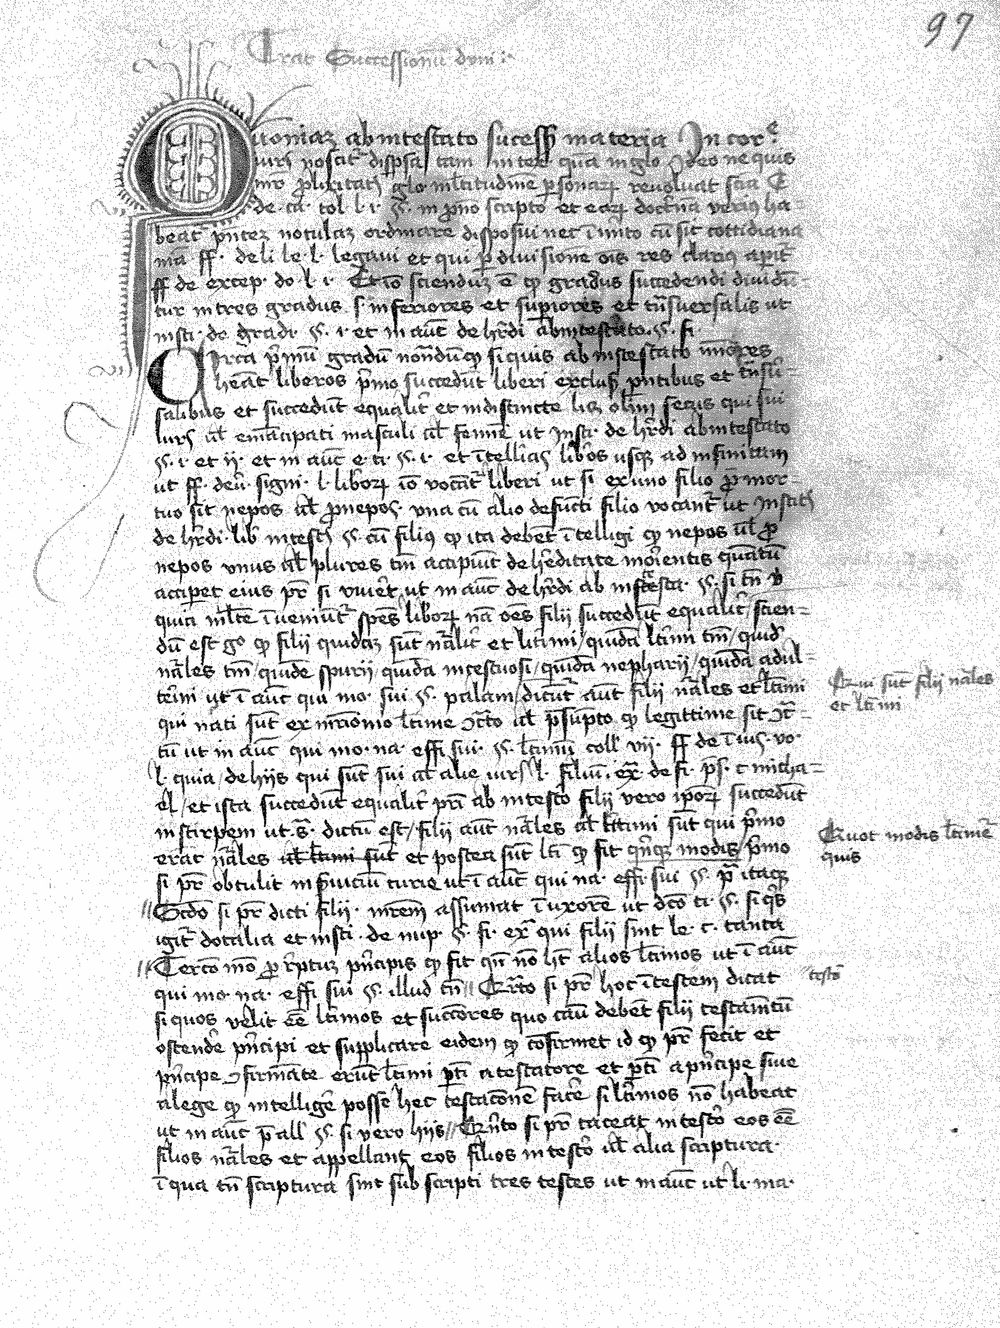 97
Trac̄ Successionū dom̄i
Quoniaz abintestato sucess̄ materia In cor
iuris noscit̄ disp̄sa tam in tex̄ qua in glo Ideo ne quis
in p̄lixitat̄ glo m̄ltitudine p̄sonaꝝ reuoluat
de. ca. tol. l. i. §. in p̄mo scripto et eaꝝ doct̄na verius ha
beat̄ p̄ntez notulaz ordinare disposui nec īmito cū sit cottidiana
mā ff. de li le. l. legaui et qui p̄ diuisionē ois res clarius apit̄
ff de excep. do. l. i. Et iō sciendū ē ꝙ graduus succedendi diuidū
tur in tres gradus s̄ inferiores et sup̄iores et tn̄suersalis ut
insti. de gradi. §. i. et in aut̄ de hr̄di abintestato. §. si.
Circa p̄mū gradū nōndū ꝙ si quis ab intestato
heāt liberos p̄mo succedūt liberi exclusis p̄ntibus et tn̄su
salibus et succedūt equalit̄ et indistincte licz olim secus qui sui
iuris ul̄ emācipati masculi ul̄ femine ut Insti. de hr̄di abintestato
§. i. et ii. et in aut̄ e. ti. §. i. et ītellias lib̄os usqz ad infinitam
ut ff. de ū. signi. l. liboꝝ iō vocāt̄ liberi ut si ex uno filio p̄mor
tuo sit nepos ul̄ p̄nepos. vna cū alio defuncti filio vocant̄ ut Instit̄
de hr̄di. lib̄ intest̄ §. cū filius ꝙ ita debet ītelligi ꝙ nepos ul̄ p̄
nepos vnus ul̄ plures tm̄ accipiūt de hr̄editate morientis quātū
acciperet eius pr̄ si viuet̄ ut in aut̄ de hr̄di ab intesta. §. si tn̄
quia m̄lte īueniūt̄ spēs liboꝝ nā oēs filii succedūt equalit̄ scien
dū est go ꝙ filii quidaz sūt nāles et litimi / quidā ltimi tm̄ / quid̄
nāles tm̄ / quidē spurii / quidā incestuosi / quidā nepharii / quidā adul
terini ut ī aut̄ qui mo. sui §. palam / dicūt̄ aūt filii nāles et ltimi
qui nati sūt ex m̄rimonio ltime ꝯtc̄o ul̄ p̄sūpto ꝙ legittime sit ꝯt̄c
tū ut in aut̄ qui mo. na. effi sui. §. ltimū coll̄ vij. ff de ī ius. vo.
l. quia / de hiis qui sūt sui ul̄ alie iuris l. filiū. ex̄. de fi. ps̄. c micha
el / et ista succedūt equalit̄ pr̄i ab intest̄o filii vero ipoꝝ succedūt
in stirpem ut s̄. dictū est / filii aūt nāles ul̄ ltimi sūt qui p̄mo
erāt nāles ul̄ ltimi sūt et postea sūt lti ꝙ fit qn̄qz modis / p̄mo
si pr̄ obtulit in s̄uiciū curie ut ī aut̄ qui na. effi sui §. p̄ itaqz
Scd̄o si pr̄ dicti filii. mrēm assumat ī uxorē ut dc̄o ti. §. si q̄s
igit̄ dotalia et insti. de nup. §. fi. ex̄ qui filii sint le. c. tanta
Tercio mō p̄ r̄ptuz p̄ncipis ꝙ fit qn̄ nō ht̄ alios ltimos ut ī aut̄
qui mo. na. effi sui §. illud tn̄ Qr̄to si pr̄ hoc ītestem dicat
si quos velit eē ltimos et succōres quo casū debēt filii testamtū
ostendē p̄ncipi et supplicare eidem ꝙ cōfirmet id ꝙ pr̄ fecit et
p̄ncipe ꝯfirmāte erūt ltimi p̄ti a testatore et p̄ti a p̄ncipe siue
a lege ꝙ intelligē posse hec testac̄onē facē si ltimos nō habeat
ut in aut̄ p̄ all §. si vero hiis Qn̄to si pr̄ taceat in test̄o eos eē
filios nāles et appellant eos filios in test̄o ul̄ alia scriptura
ī qua tn̄ scriptura sint sub scripti tres testes ut in aut̄ ut li. ma.
Qui sūt filii nāles
et ltimi
Quot modis ltime
quis
testō